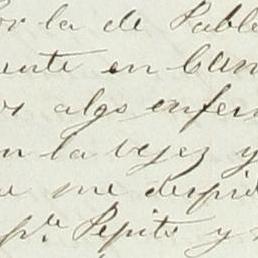 or la de Pable
ente en Can
or algo enfer
n la vejez y
e me despid
pr. Pepito y